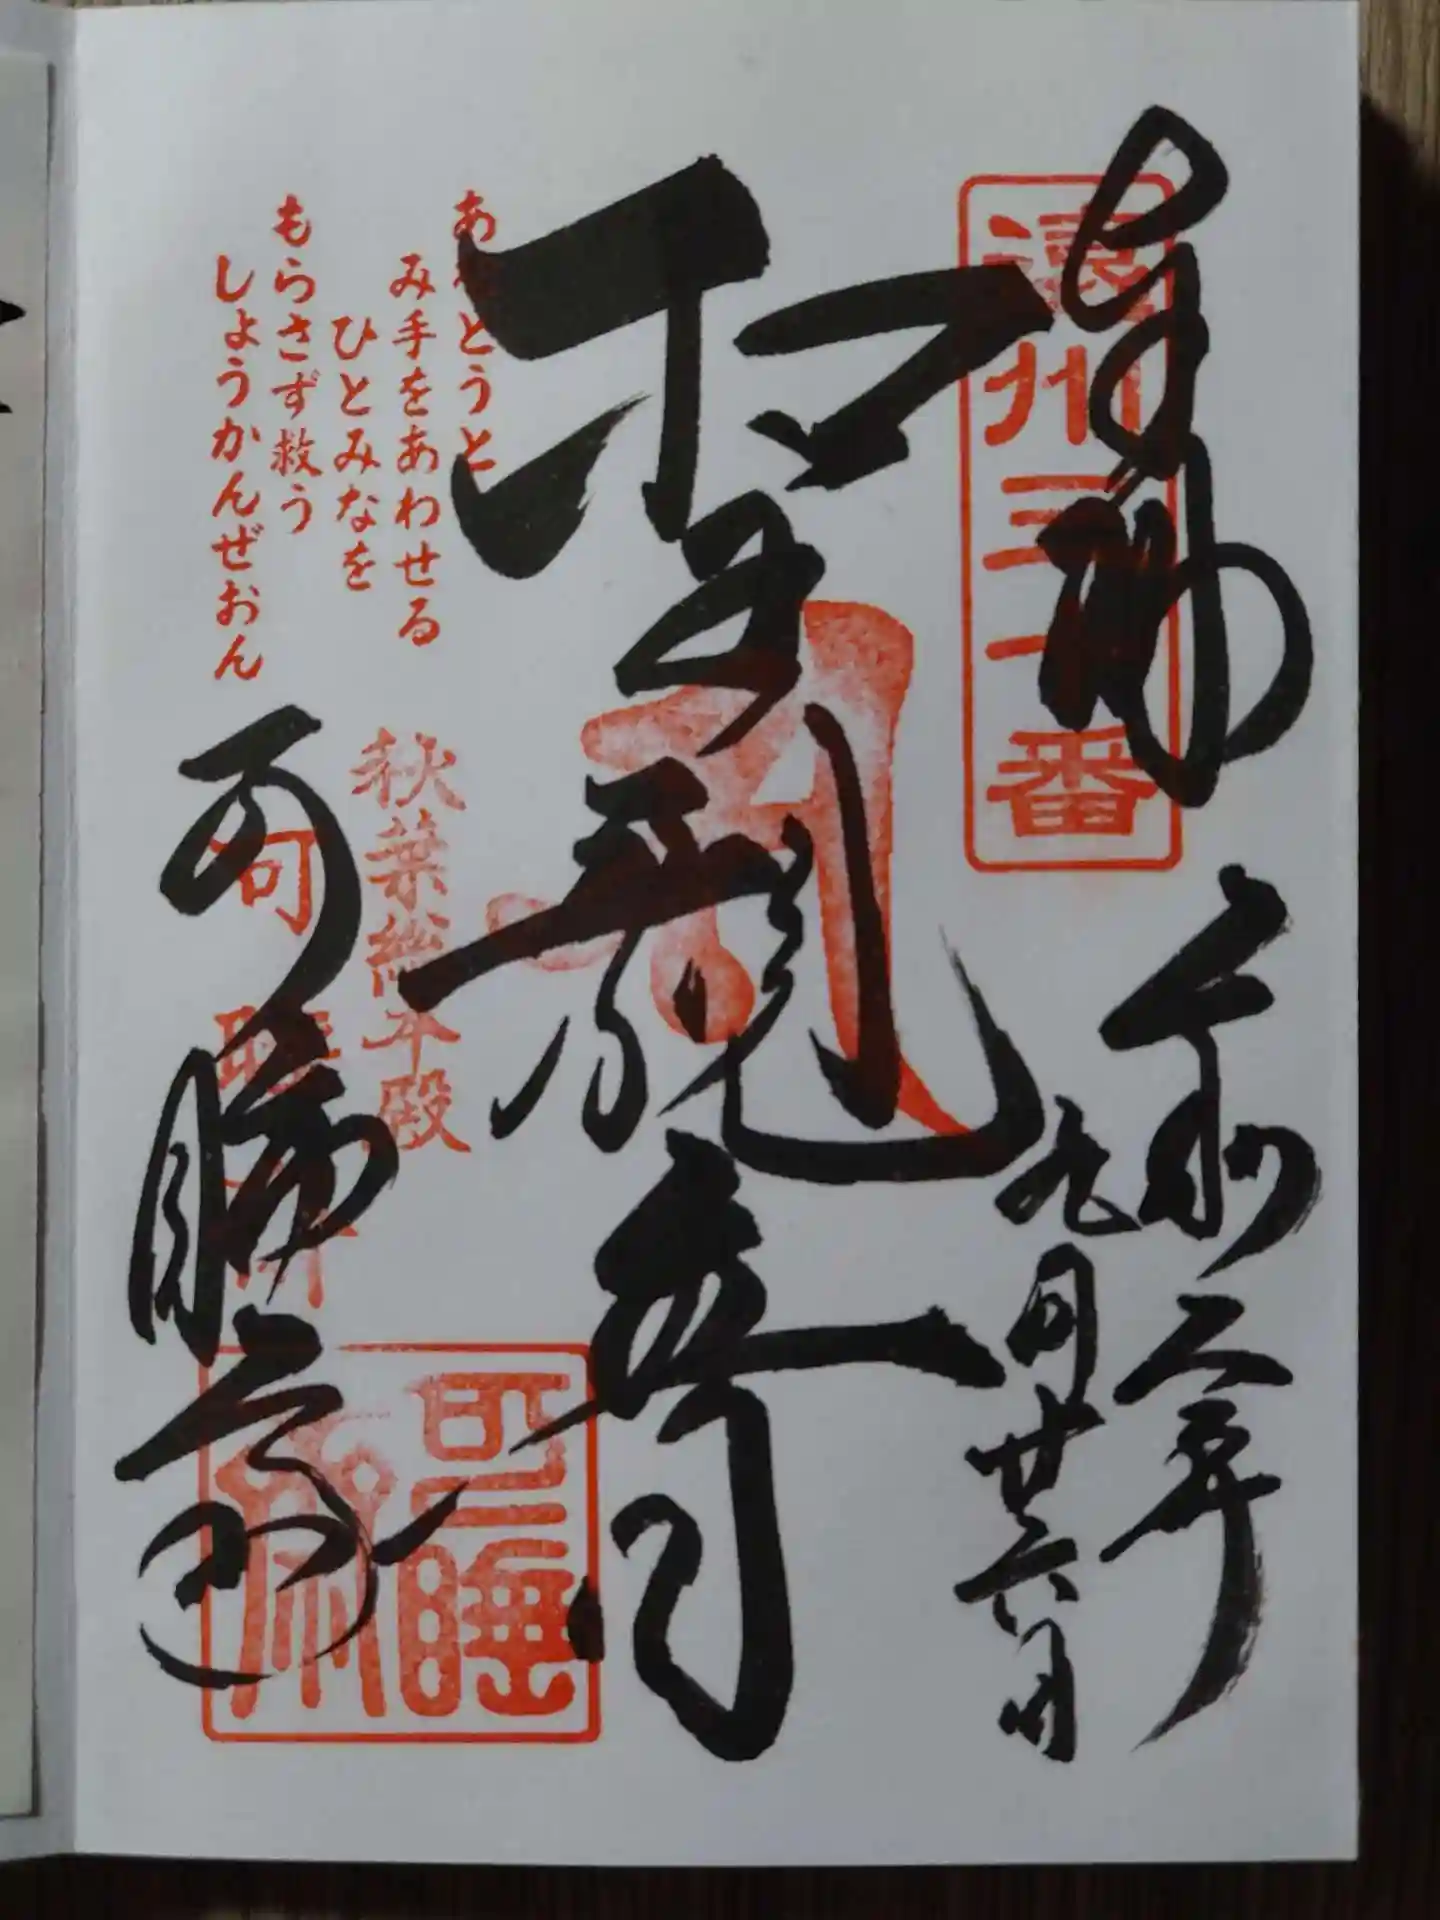 奉拝
遠州三十番
令和二年
九月廿六日
聖観音
あなとうと
み手をあわせる
ひとみなを
もらさず救う
しようかんぜおん
秋葉総本殿
可睡斎